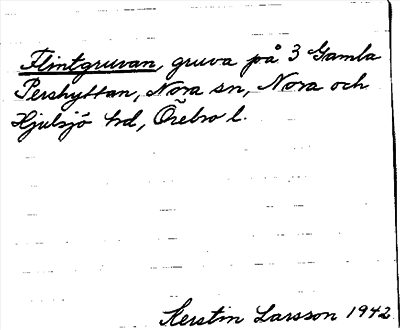 Flintgruvan, gruva på 3 Gamla
Pershyttan, Nora sn, Nora och
Hjulsjö hd, Örebro l.
Kerstin Larsson 1942